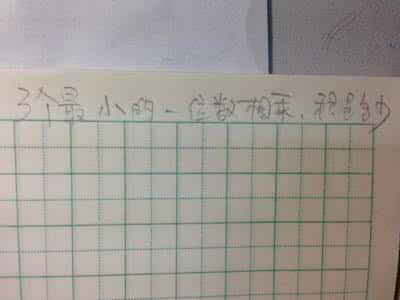 3个最小的一位数相乘,积是多少